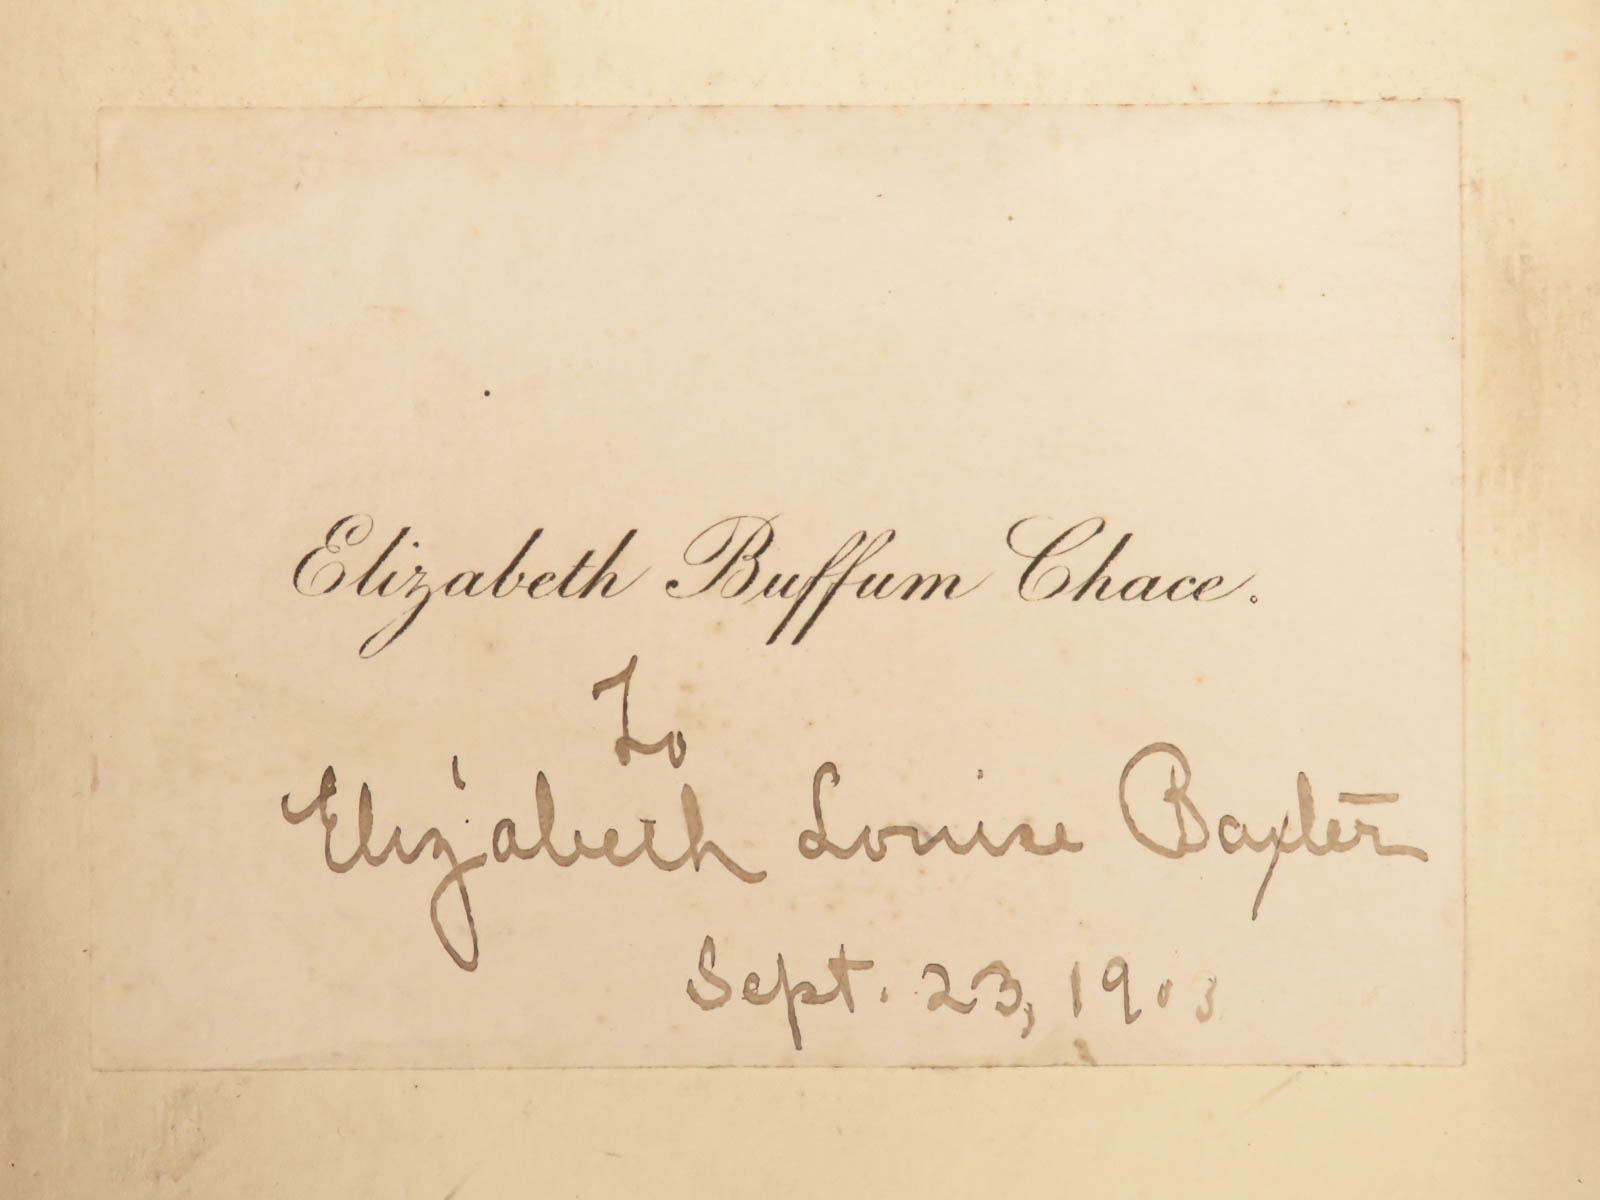 Elizabeth Buffum Chace.
To
Elizabeth Louise Baxter
Sept. 23, 1903